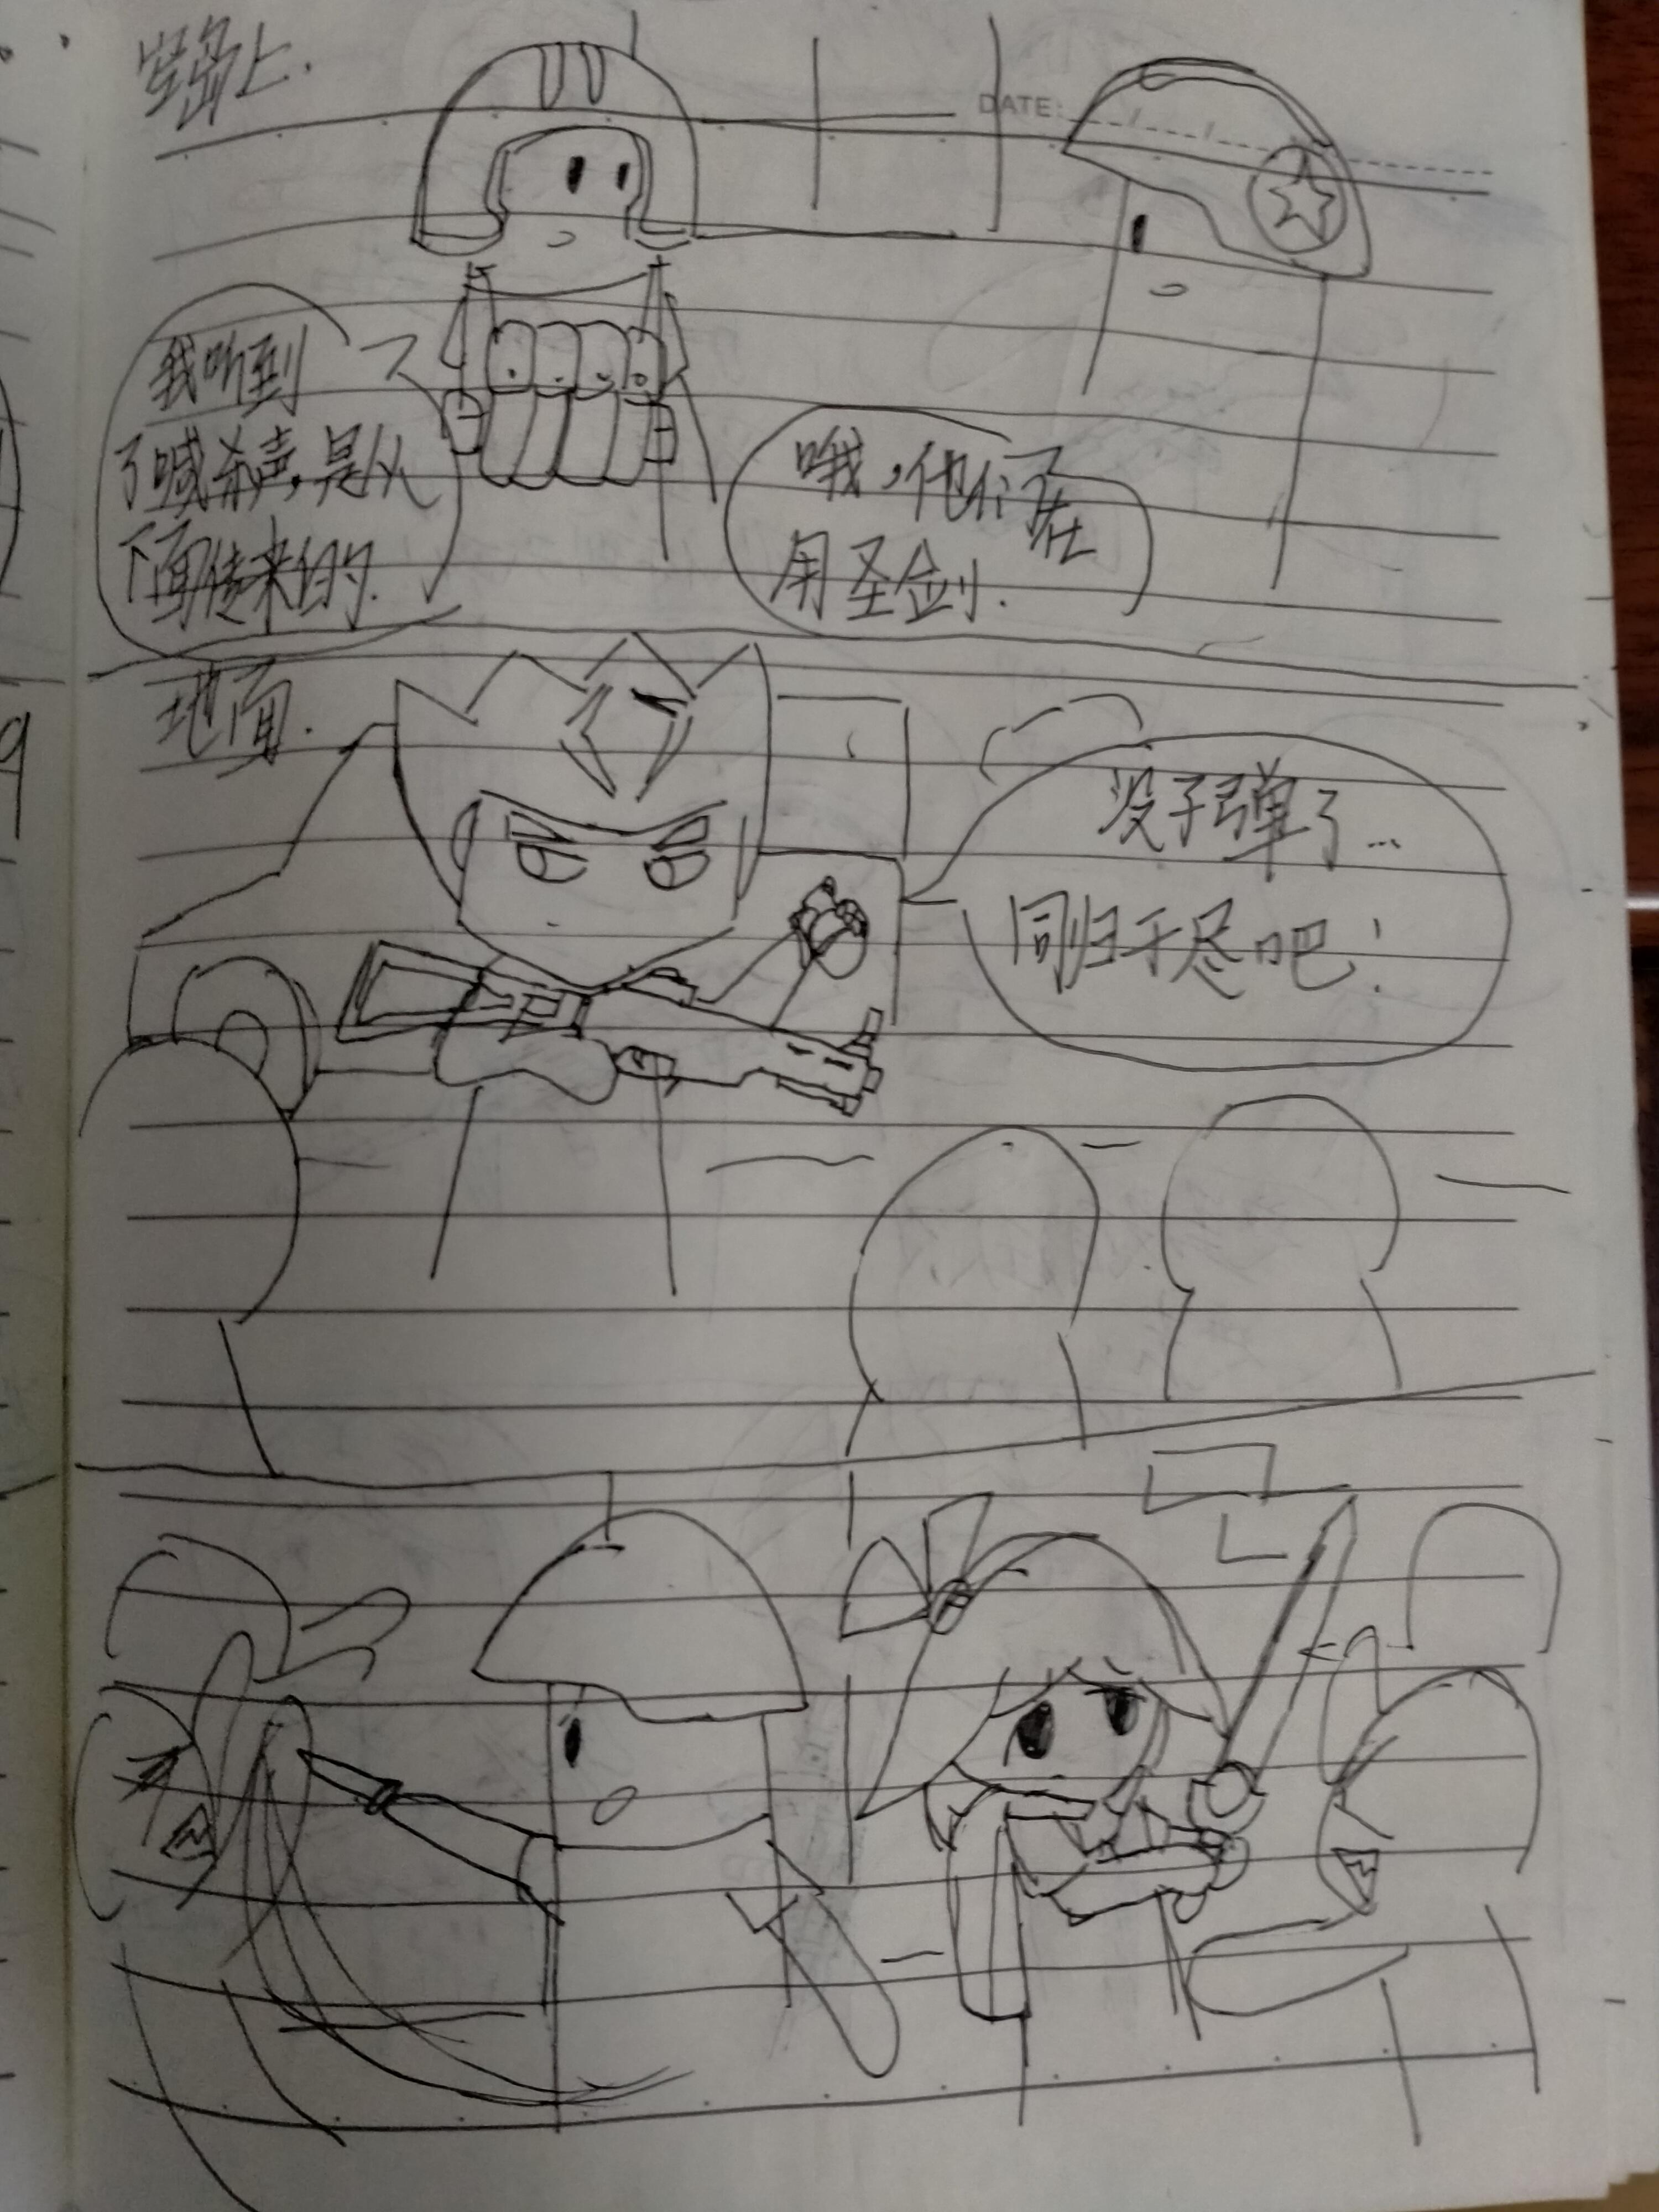 空岛上.
DATE:
我听到
了喊杀声,是从
下面传来的.
哦,他们在
用圣剑.
地面.
没子弹了...
同归于尽吧!